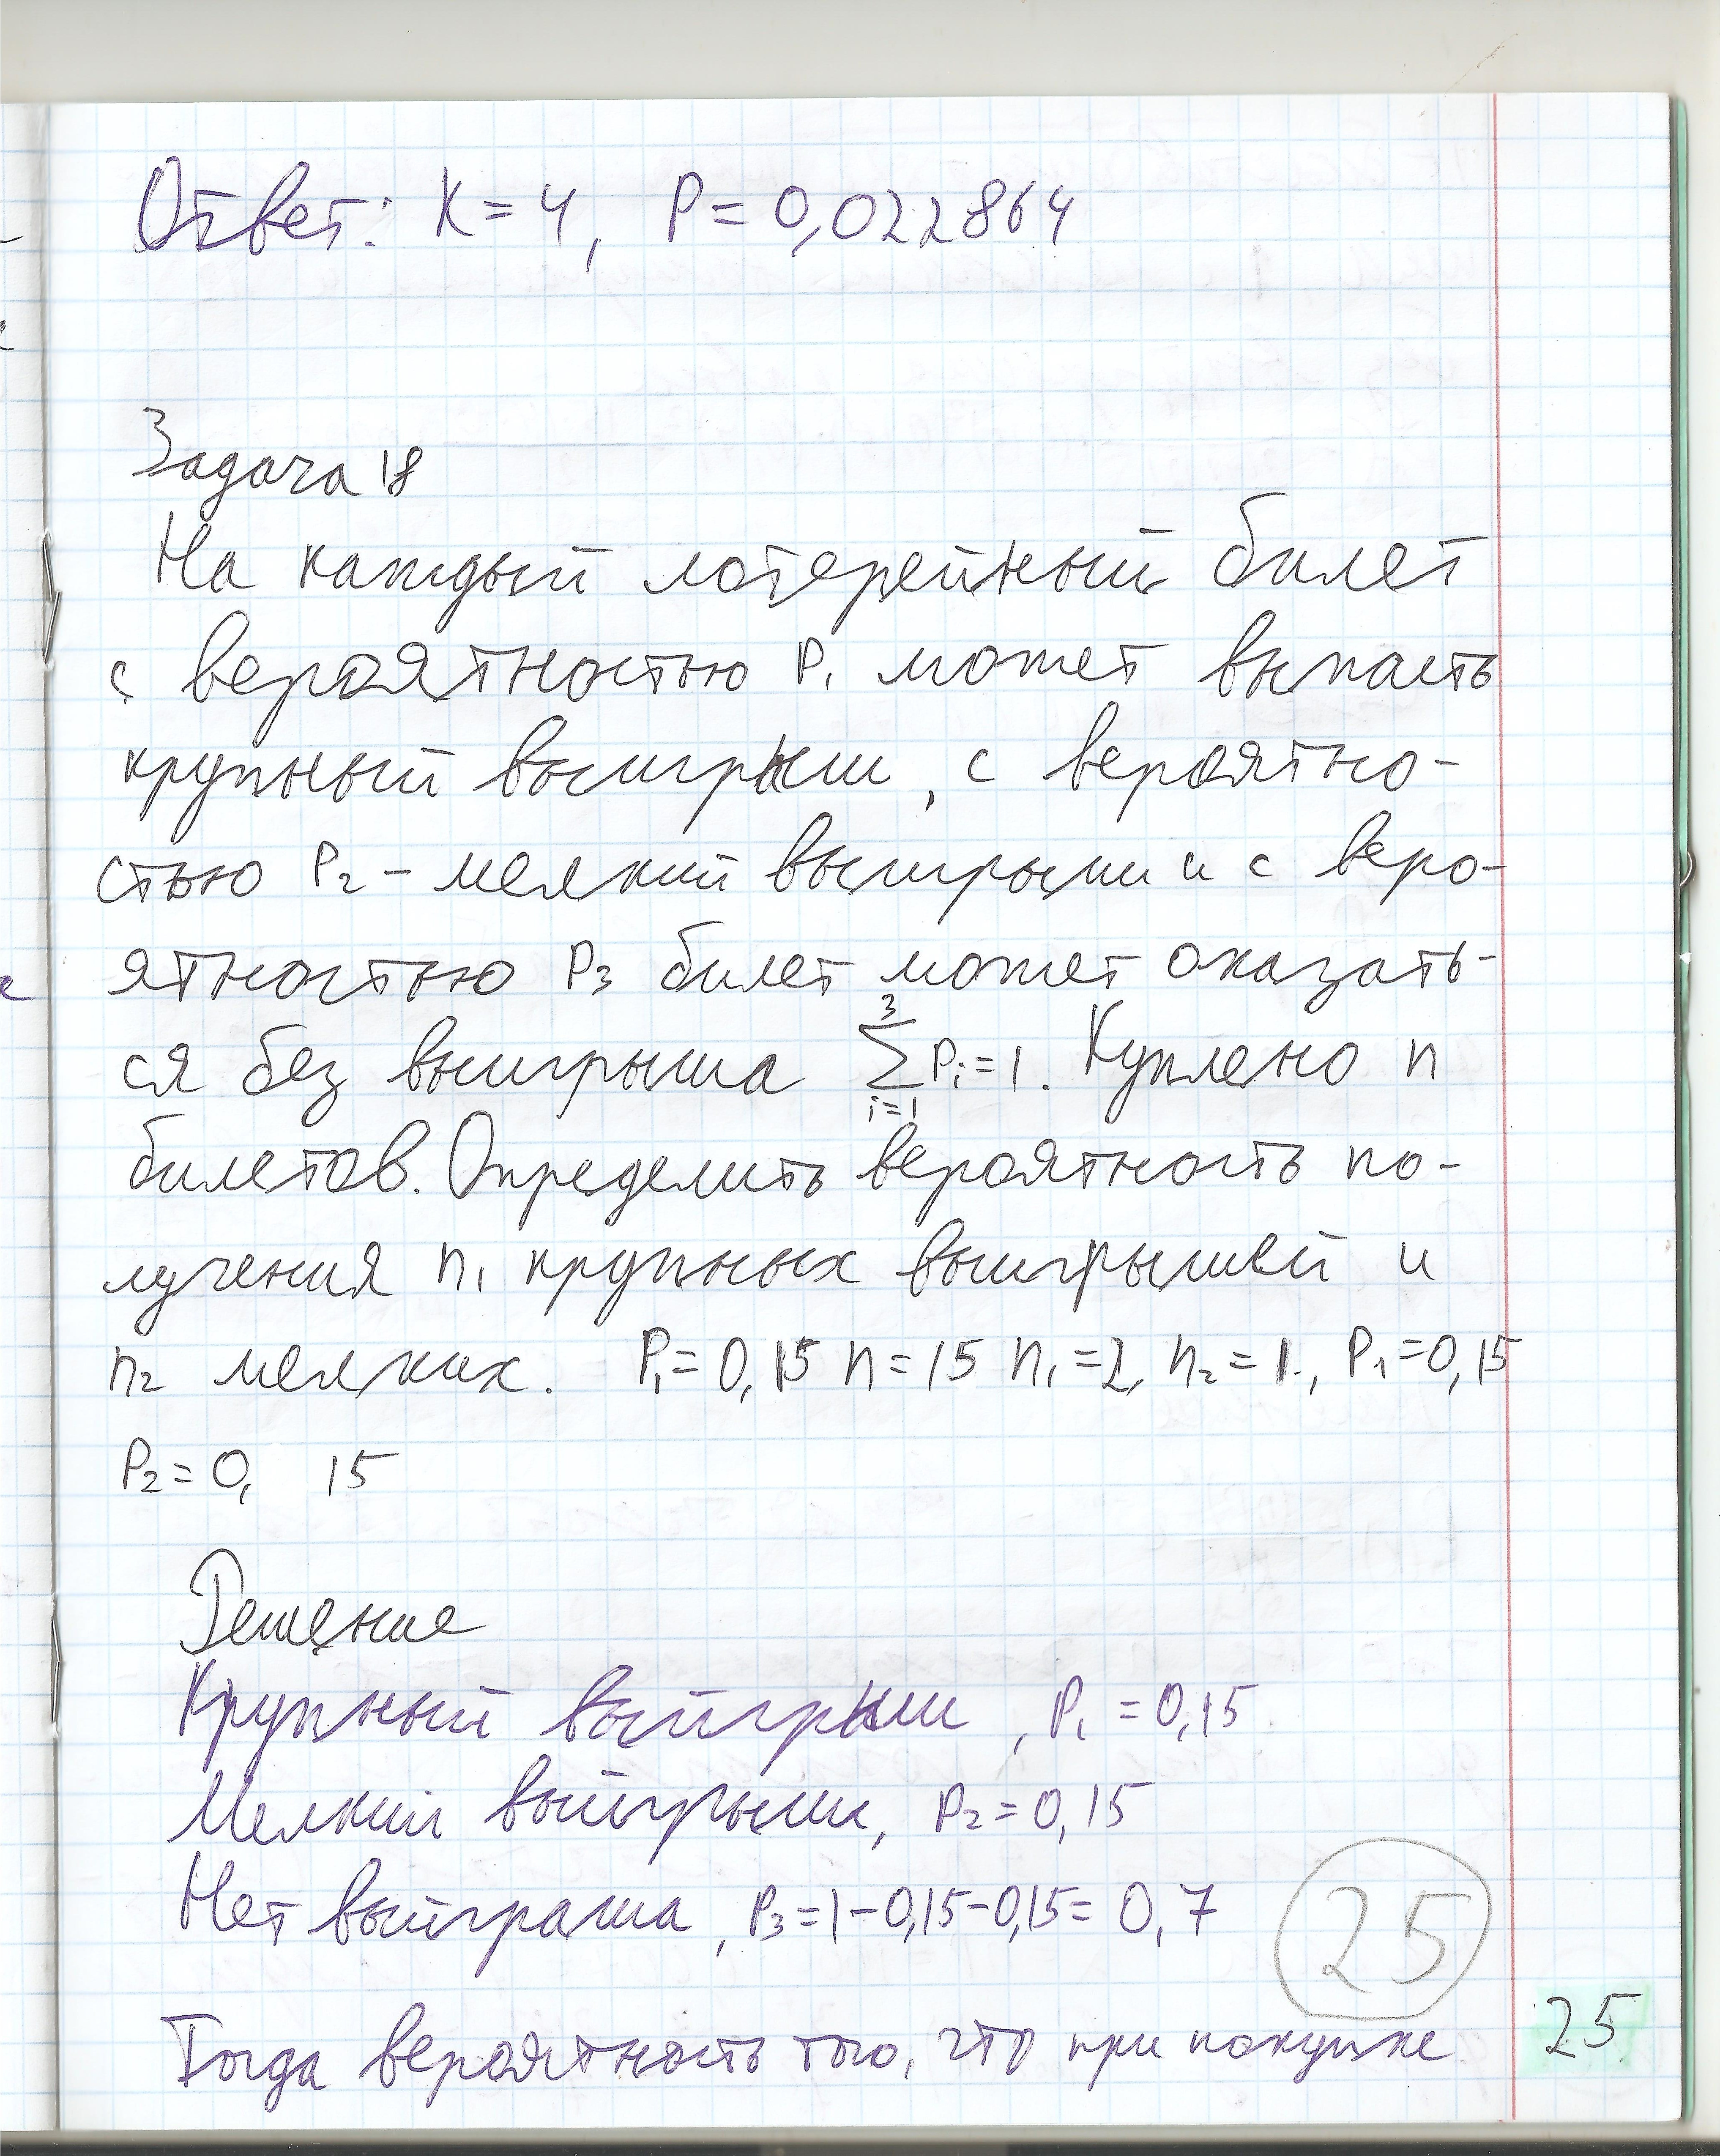 Ответ: К=4, Р=0,022864
Задача 18
На каждый лотерейный билет
с вероятностью Р₁ может выпасть
крупный выигрыш, с вероятно-
стью Р₂ – мелкий выигрыш и с веро-
ятностью Р₃ билет может оказать-
ся без выигрыша \sum_{i=1}^{3} Pᵢ=1. Куплено n
билетов. Определить вероятность по-
лучения n₁ крупных выигрышей и
n₂ мелких. P₁=0,15 n=15 n₁=2, n₂=1., P₁=0,15
P₂=0, 15
Решение
Крупный выйгрыш, P₁=0,15
Мелкий выйгрыш, P₂=0,15
Нет выйграша, P₃=1-0,15-0,15=0,7
25
Тогда вероятность того, что при покупке
25